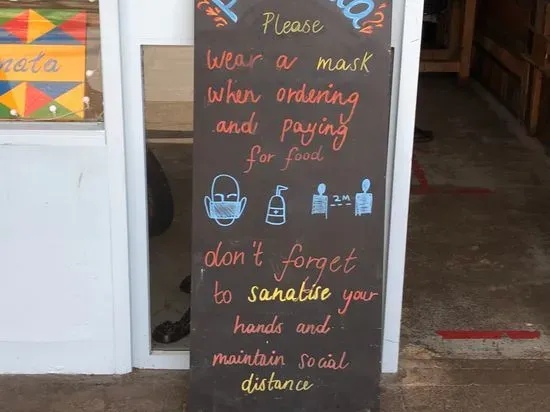 nata
Please
wear a mask
when ordering
and paying
for food
2M
don't forget
to sanatise your
hands and
maintain social
distance